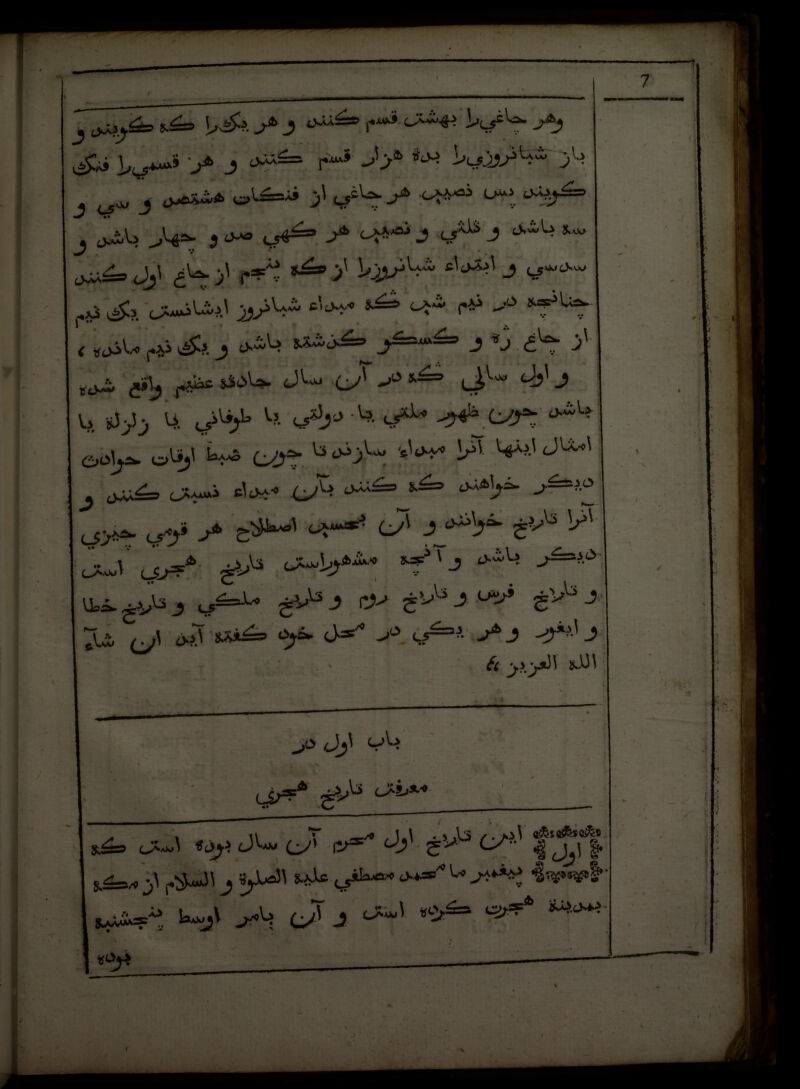 7
وهر چاغي‌را بهشت قسم كنند و هر يك‌را كه كويند و
باز شبانروزي‌را بده هزار قسم كنند و هر قسمي‌را فنك
كويند پس نصيب هر چاغي از فنكات هشتصد و سي و
سه باشد و ثلثي و نصيب هر كهي صد و چهار باشد و
سدسي و ابتداء شبانروزرا از كه پنجم از چاغ اول كنند
چنانچه در نيم شب كه مبداء شبانروز ايشانست يك نيم
از چاغ زه و كسكو كذشته باشد و يك نيم مانده
و اول سالي كه در آن سال حادثه عظيم واقع شده
باشد چون ظهور ملتي يا دولتي يا طوفاني يا زلزلة يا
امثال اينها آنرا مبداء سازند تا چون ضبط اوقات حوادث
ديكر خواهند كه كنند بآن مبداء نسبت كنند و
آنرا تاريخ خوانند و آن بحسب اصطلاح هر قومي چيزي
ديكر باشد و آنچه مشهوراست تاريخ هجري است
و تاريخ فرس و تاريخ روم و تاريخ ملكي و تاريخ خطا
و ايغور و هر يكي در محل خود كفته آيد ان شاء
الله العزيز
باب اول در
معرفت تاريخ هجري
اول اين تاريخ اول محرم آن سال بوده است كه
پيغمبر ما محمد مصطفي عليه الصلوة و السلام از مكه
بمدينة هجرت كرده است و آن بامر اوسط پنجشنبه
بوده